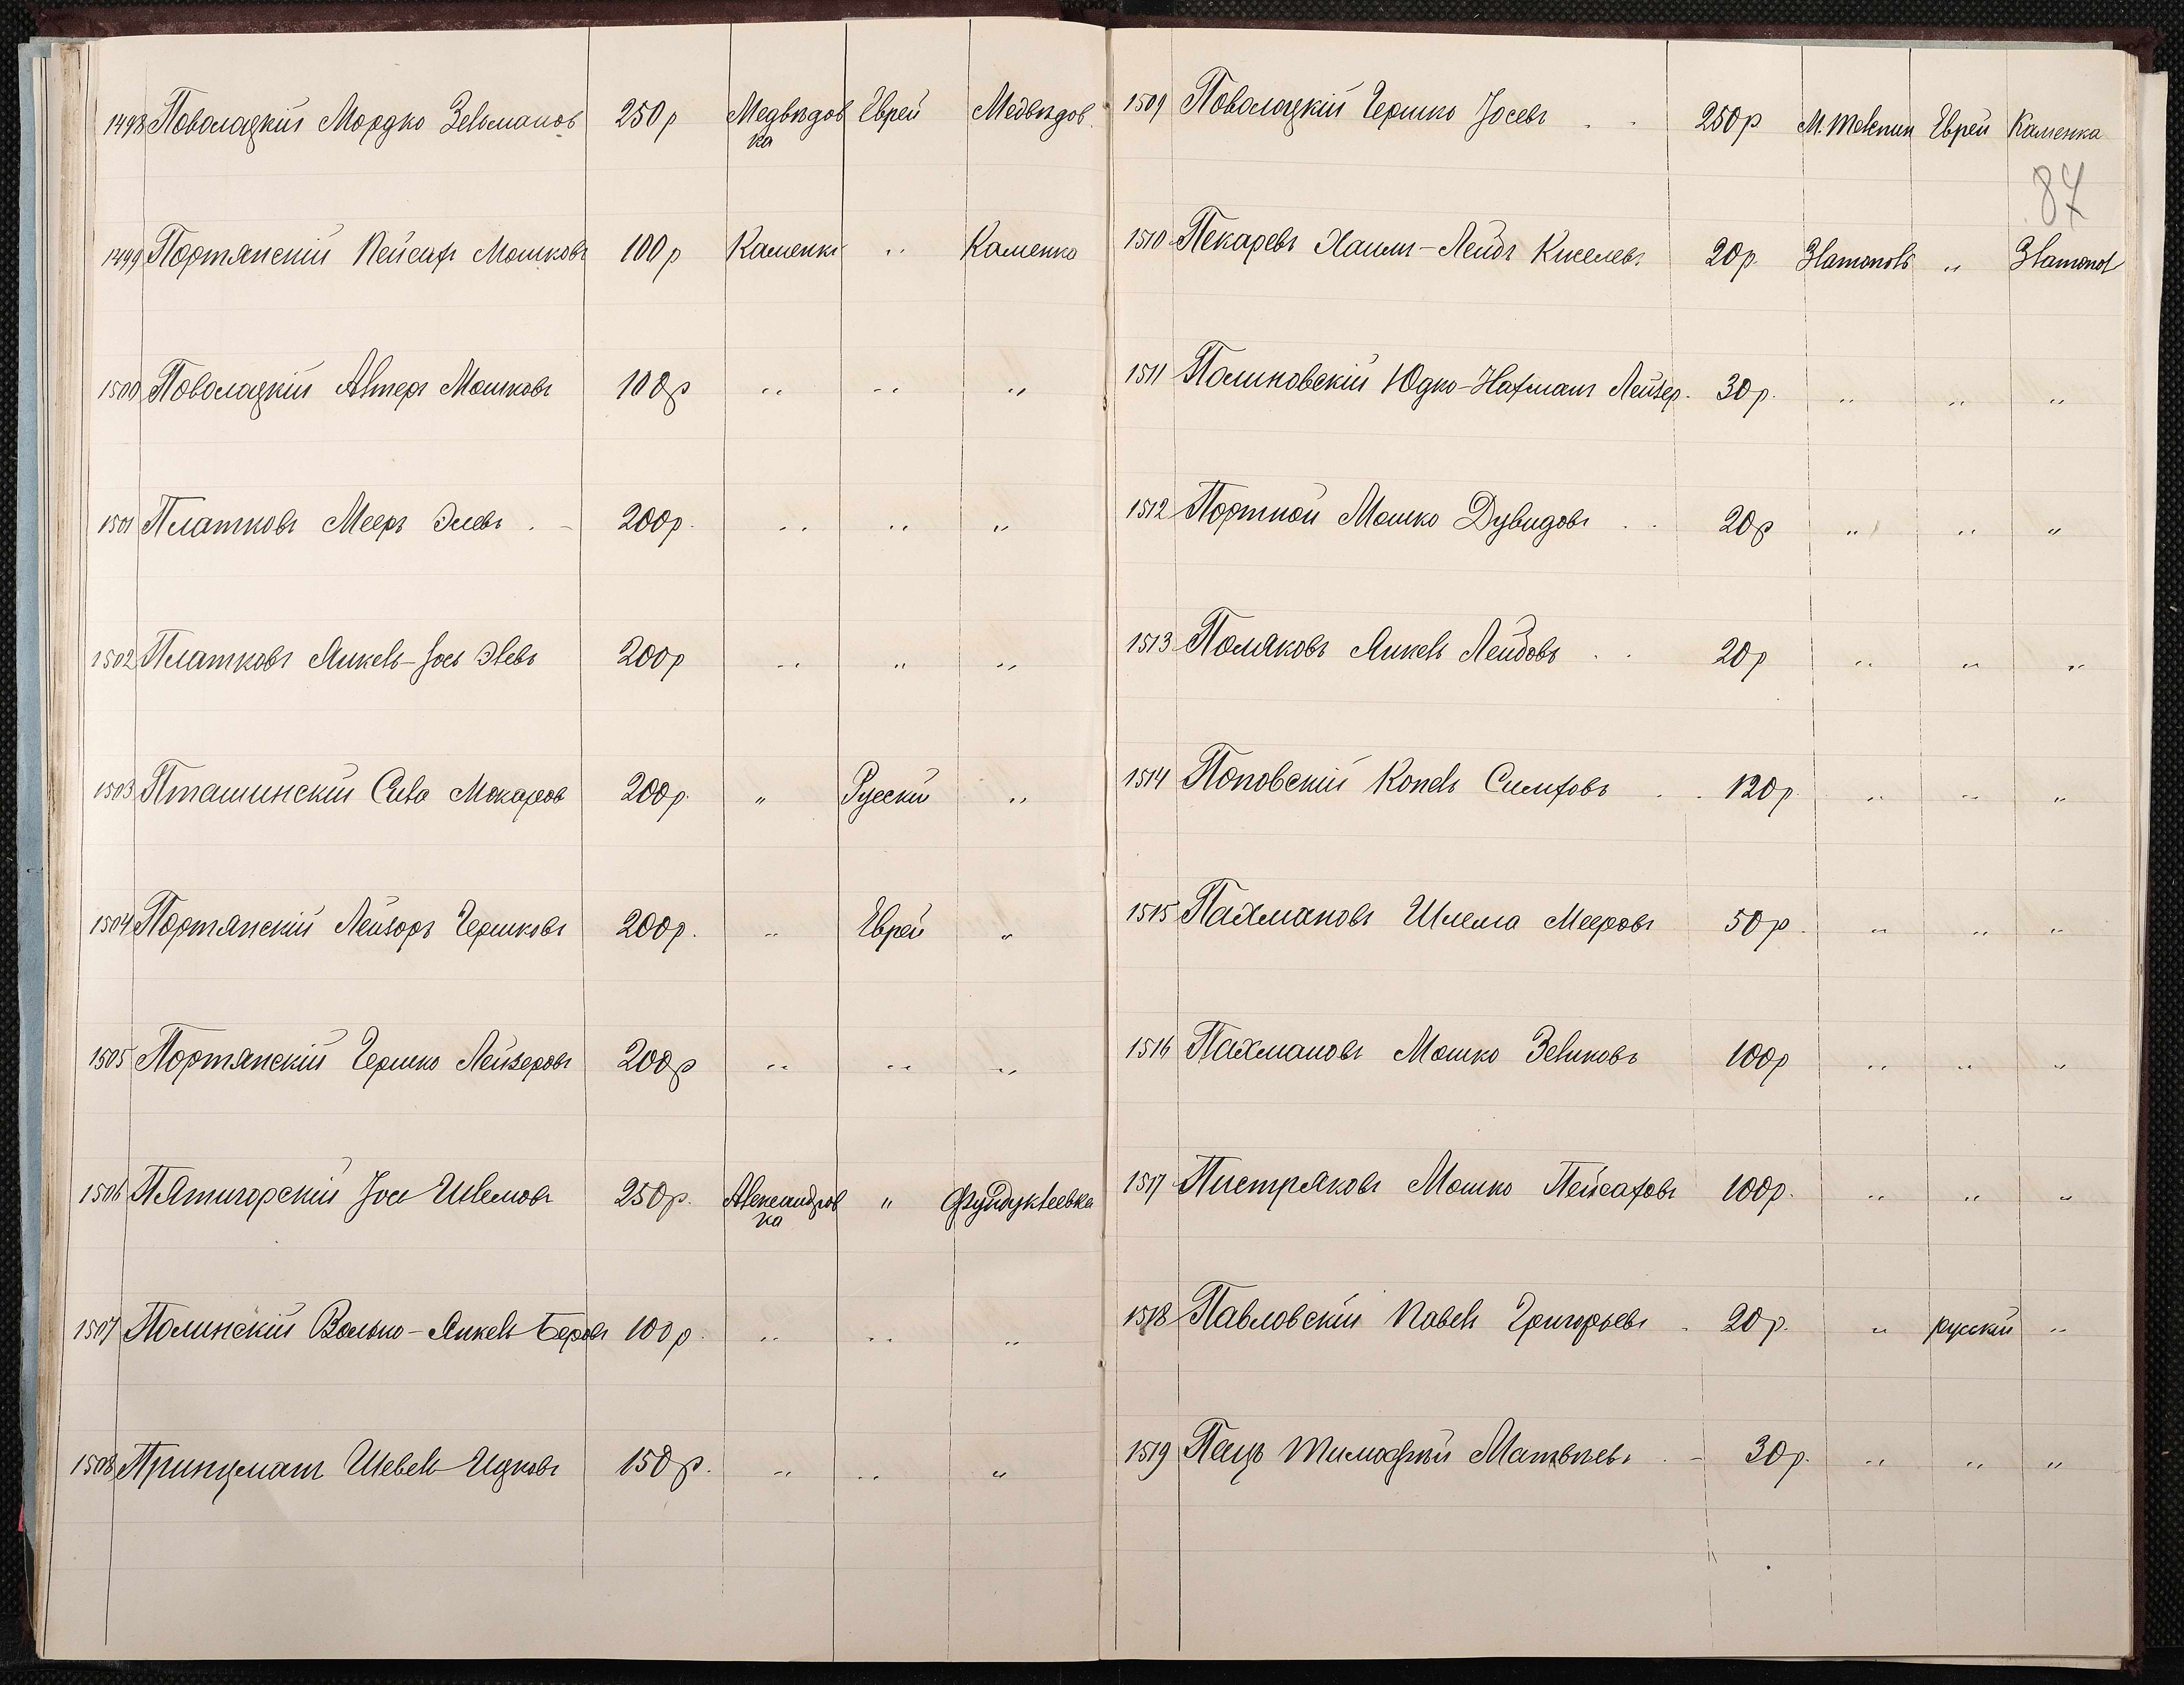 1498 Поволацкій Мордко Зельманов 250р Медвѣдов Еврей Медвѣдов.
ка
1499 Портянскій Пейсах Мошковъ 100р Каменка " Каменка
1500 Поволацкій Алтеръ Мошковъ 100р " " "
1501 Платковъ Мееръ Элевъ . - 200р. " " "
1502 Платковъ Янкель-Јось Элевъ 200р " " "
1503 Пташинскій Сила Макаров 200р. " Русскій "
1504 Портянскій Лейзоръ Гершковъ 200р. " Еврей "
1505 Портянскій Гершко Лейзеровъ 200р " " "
1506 Пятигорскій Јос Шлемовъ 250р. Александров " Фундуклеевка
ка
1507 Полинскій Волько-Янкель Беровъ 100р. " " "
1508 Принцманъ Шевель Ицковъ 150р. " " "
1509 Поволоцкій Гершко Јосевъ . . 250р М. Телепин Еврей Каменка
87
1510 Пекаревъ Хаимъ-Лейбъ Киселевъ 20р. Златополь " Златопол
1511 Полиновскій Юдко-Нахманъ Лейзер. 30р. " " "
1512 Портной Мошко Дувидовъ . . 20р " " "
1513 Поляковъ Янкель Лейбовъ . . 20р " " "
1514 Поповскій Копель Симховъ . . 120р. " " "
1515 Пахмановъ Шлема Мееровъ 50р. " " "
1516 Пахмановъ Мошко Зеликовъ 100р " " "
1517 Пистряковъ Мошко Пейсаховъ 100р. " " "
1518 Павловскій Павелъ Григорьевъ . 20р. " русскій "
1519 Пецъ Тимофѣй Матвѣевъ . - 30р. " " "